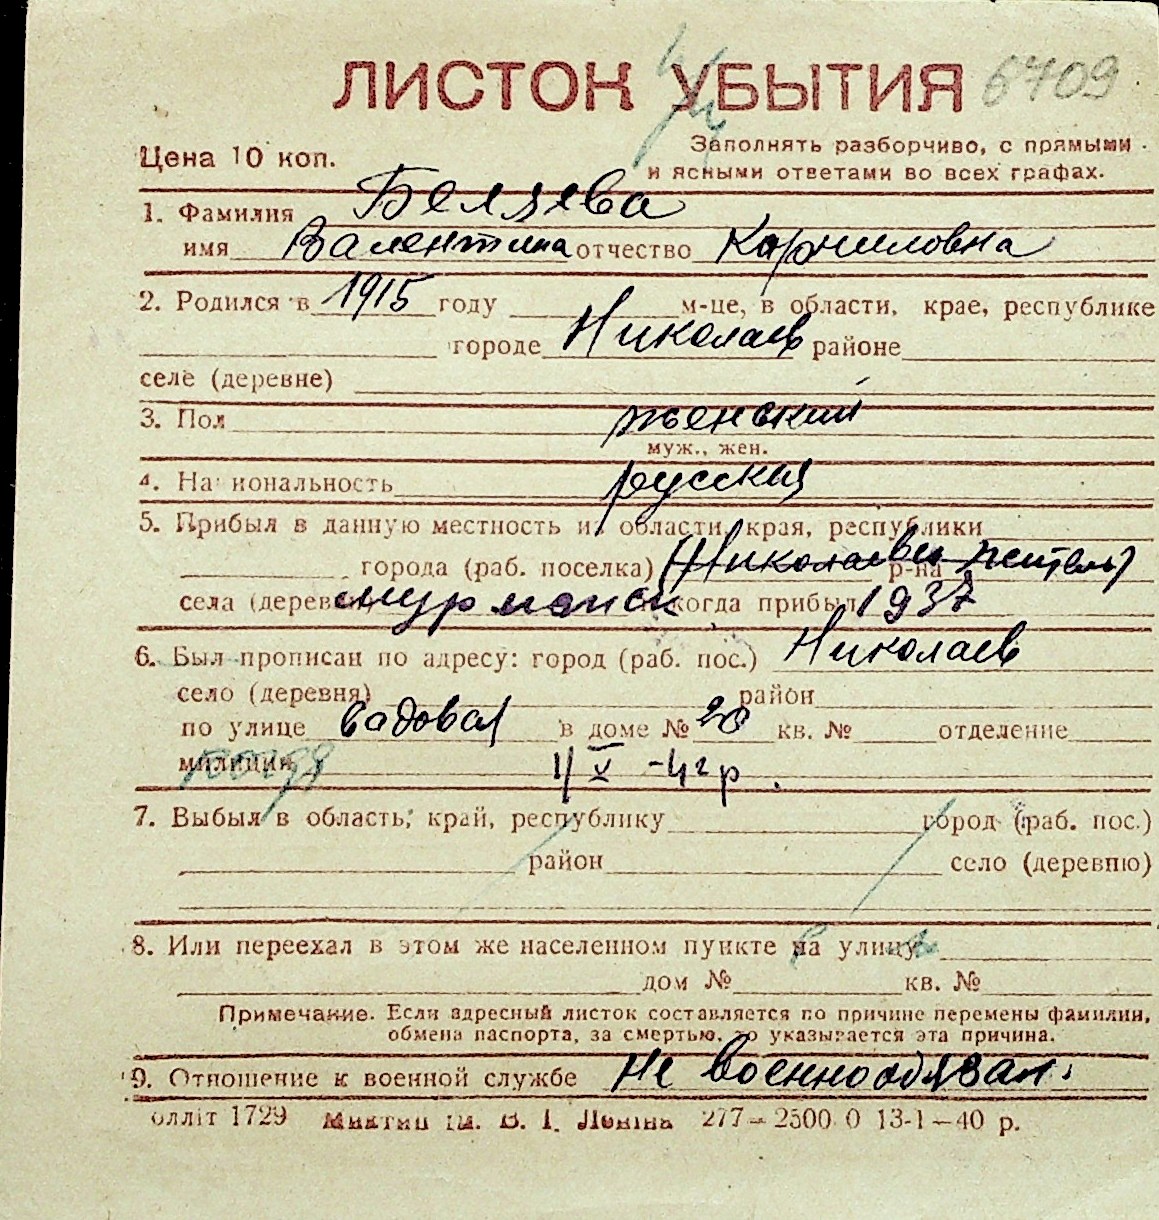 ЛИСТОК УБЫТИЯ 6709
Цена 10 коп.
Заполнять разборчиво, с прямыми
и ясными ответами во всех графах.
1. Фамилия Беляева
имя Валентина отчество Корниловна
2. Родился в 1915 году м-це, в области, крае, республике
городе Николаев районе
селе (деревне)
3. Пол женский
муж., жен.
4. Национальность русская
5. Прибыл в данную местность из области, края, республики
города (раб. поселка) Николаев р-на
села (деревни) Мурманск когда прибыл 1937
6. Был прописан по адресу: город (раб. пос.) Николаев
село (деревня) район
по улице Садовая в доме № 20 кв. № отделение
милиции
7. Выбыл в область, край, республику город (раб. пос.)
район село (деревню)
8. Или переехал в этом же населенном пункте на улицу
дом № кв. №
Примечание. Если адресный листок составляется по причине перемены фамилии,
обмена паспорта, за смертью, то указывается эта причина.
9. Отношение к военной службе не военнообязан.
Олліт 1729 ім. В. І. Леніна 277—2500 0 13-1—40 р.